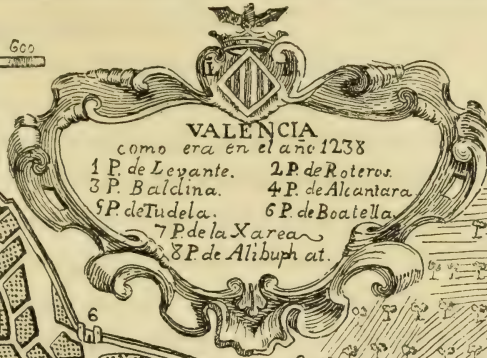 600
VALENCIA
como era en el año 1238
1 P. de Levante. 2 P. de Roteros.
3 P. Baldina. 4 P. de Alcantara.
5 P. de Tudela. 6 P. de Boatella.
7 P. de la Xarea
8 P. de Alibuph at.
6